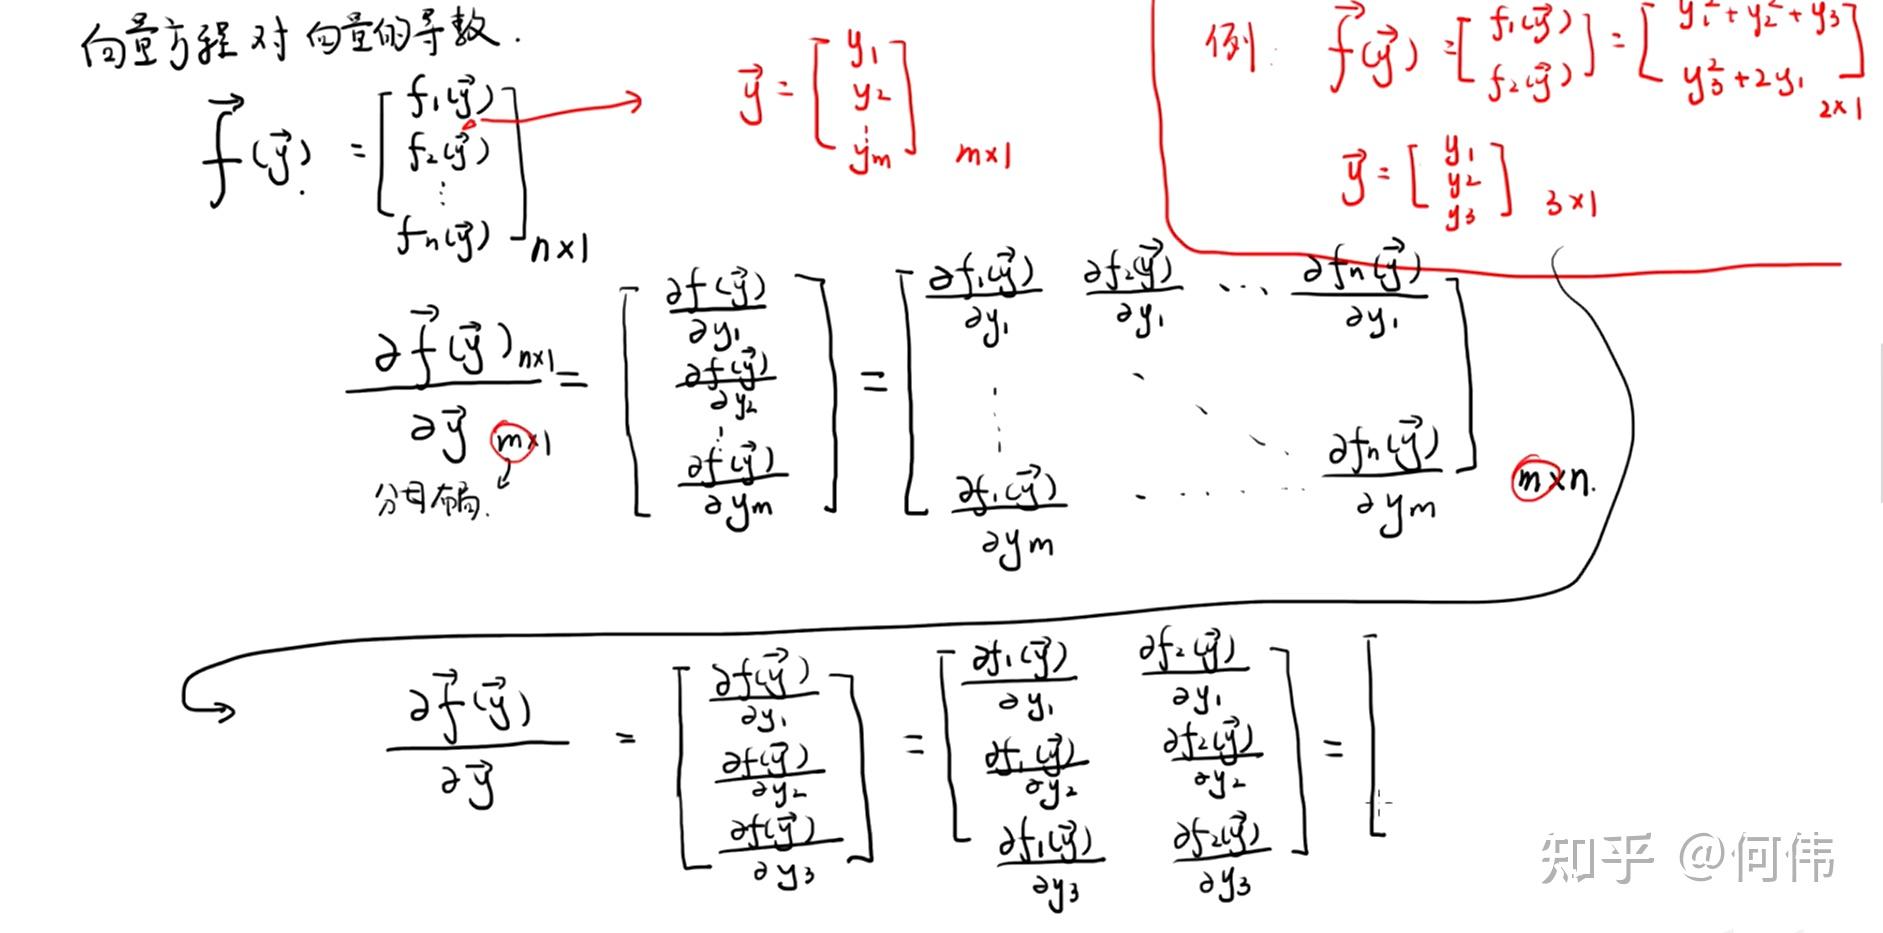 向量方程对向量的导数.
例: f⃗(y⃗) = [f₁(y⃗) f₂(y⃗)] = [y₁² + y₂² + y₃ y₃² + 2y₁] 2×1
y⃗ = [y₁ y₂ y₃] 3×1
f⃗(y⃗) = [f₁(y⃗) f₂(y⃗) ⋮ fn(y⃗)] n×1
y⃗ = [y₁ y₂ ⋮ ym] m×1
∂f⃗(y⃗) n×1 / ∂y⃗ m×1 = [∂f(y⃗)/∂y₁ ∂f(y⃗)/∂y₂ ⋮ ∂f(y⃗)/∂ym] = [∂f₁(y⃗)/∂y₁ ∂f₂(y⃗)/∂y₁ ⋯ ∂fn(y⃗)/∂y₁ ⋮ ⋱ ∂f₁(y⃗)/∂ym ⋯ ∂fn(y⃗)/∂ym] m×n.
分母布局.
∂f⃗(y⃗)/∂y⃗ = [∂f(y⃗)/∂y₁ ∂f(y⃗)/∂y₂ ∂f(y⃗)/∂y₃] = [∂f₁(y⃗)/∂y₁ ∂f₂(y⃗)/∂y₁ ∂f₁(y⃗)/∂y₂ ∂f₂(y⃗)/∂y₂ ∂f₁(y⃗)/∂y₃ ∂f₂(y⃗)/∂y₃] = [
知乎 @何伟